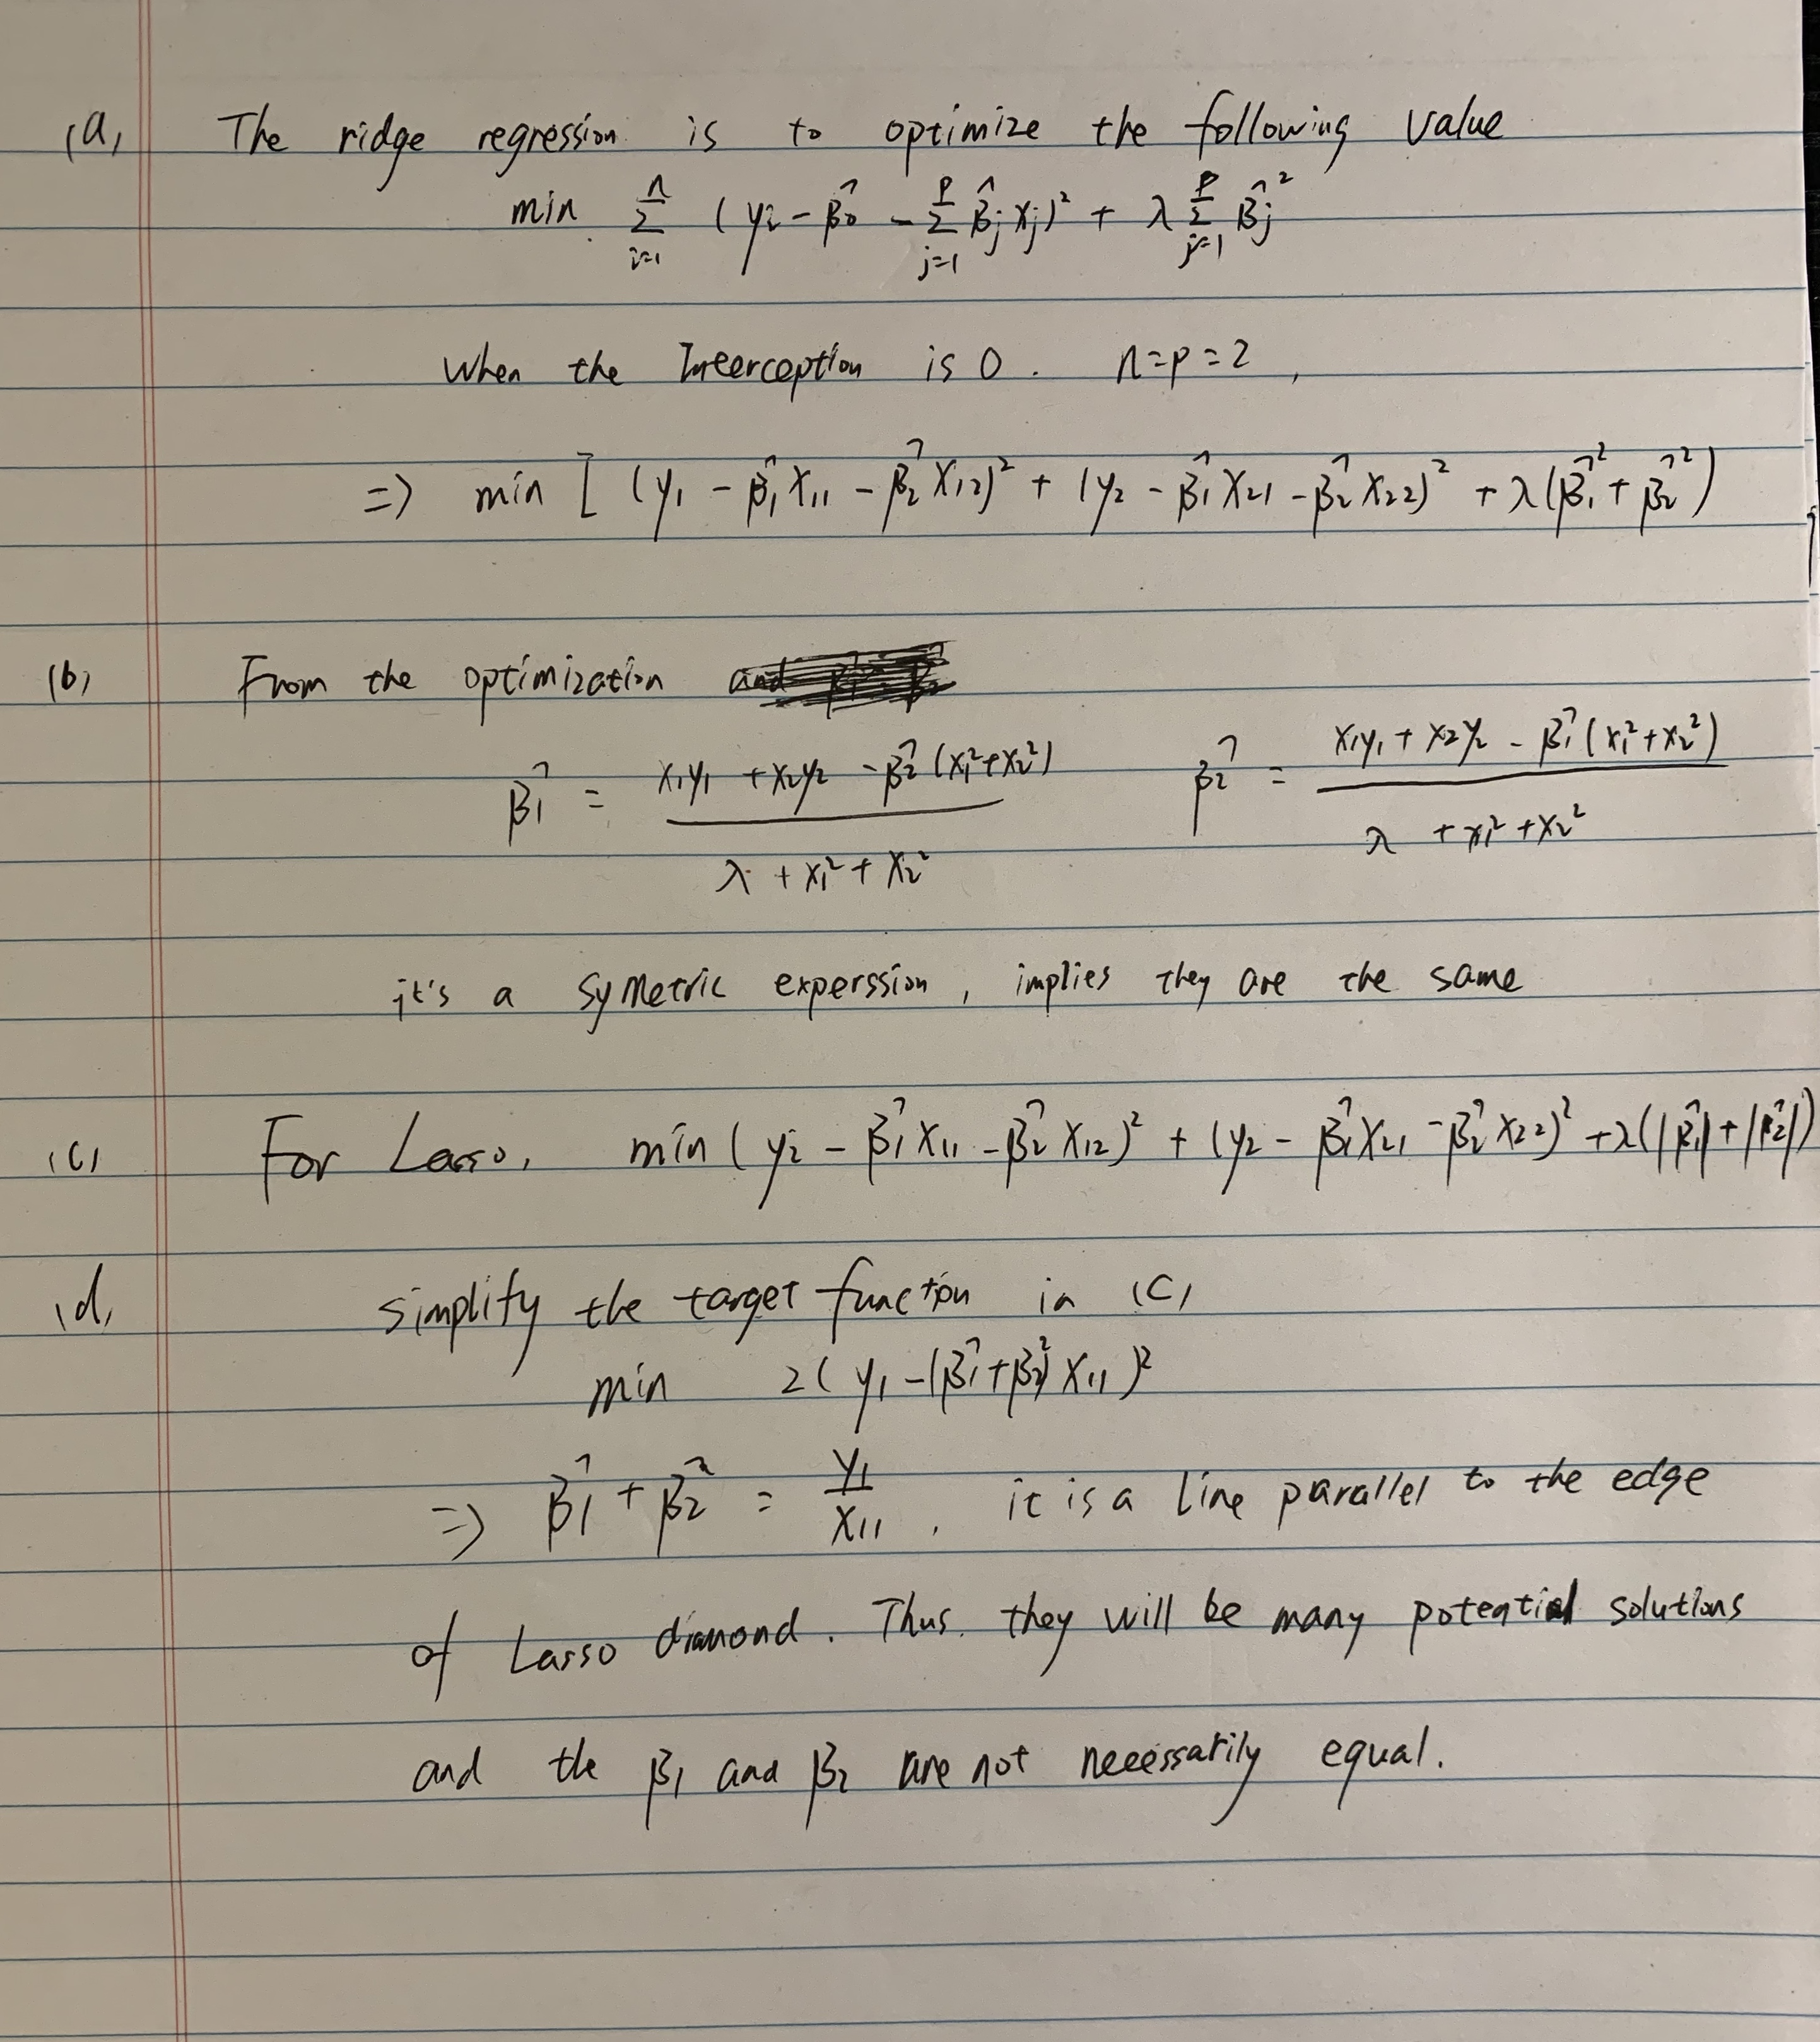 (a) The ridge regression is to optimize the following value
min Σ_{i=1}^{n} (yi - β̂0 - Σ_{j=1}^{p} β̂j xj)² + λ Σ_{j=1}^{p} β̂j²
When the Interception is 0. n=p=2,
=> min [ (y1 - β̂1 x11 - β̂2 x12)² + (y2 - β̂1 x21 - β̂2 x22)² + λ(β̂1² + β̂2²)
(b) From the optimization
β̂1 = (x1y1 + x2y2 - β̂2 (x1² + x2²)) / (λ + x1² + x2²)    β̂2 = (x1y1 + x2y2 - β̂1 (x1² + x2²)) / (λ + x1² + x2²)
it's a symetric experssion, implies they are the same
(c) For Lasso, min (yi - β̂1 x11 - β̂2 x12)² + (y2 - β̂1 x21 - β̂2 x22)² + λ(|β̂1| + |β̂2|)
(d) simplify the target function in (c)
min 2(y1 - (β̂1 + β̂2) x11)²
=> β̂1 + β̂2 = y1 / x11 . it is a line parallel to the edge
of Lasso diamond. Thus. they will be many potential solutions
and the β1 and β2 are not necessarily equal.